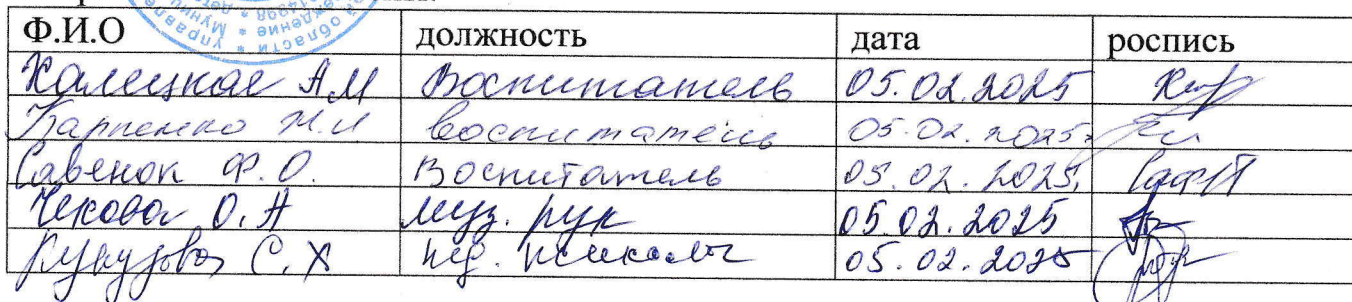 Ф.И.О должность дата роспись
Калецкая А.М Воспитатель 05.02.2025
Карпенко Н.И воспитатель 05.02.2025.
Савенок Ф.О. Воспитатель 05.02.2025.
Чекова О.А муз. рук 05.02.2025
С.Х пед. психолог 05.02.2025